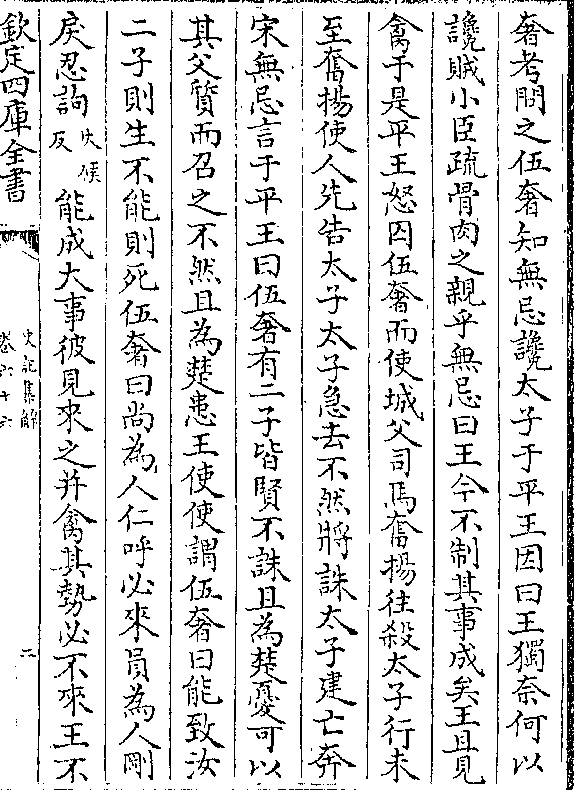 奢考問之伍奢知無忌讒太子于平王因曰王獨奈何以
讒賊小臣疏骨肉之親乎無忌曰王今不制其事成矣王且見
禽于是平王怒囚伍奢而使城父司馬奮揚往殺太子行未
至奮揚使人先告太子太子急去不然將誅太子建亡奔
宋無忌言于平王曰伍奢有二子皆賢不誅且為楚憂可以
其父質而召之不然且為楚患王使使謂伍奢曰能致汝
二子則生不能則死伍奢曰尚為人仁呼必來員為人剛
戾忍訽火候反能成大事彼見來之并禽其勢必不來王不
欽定四庫全書
史記集解
卷六十六
二